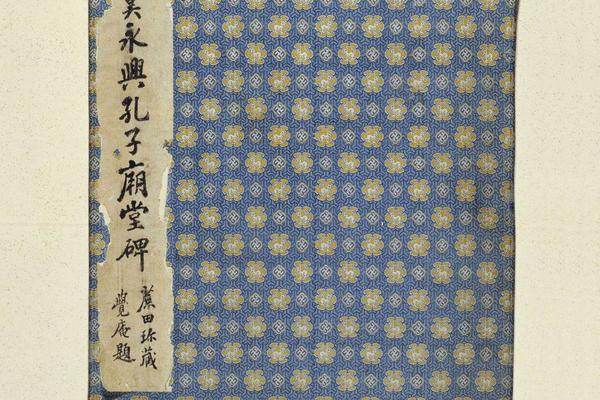 永興孔子廟堂碑
蔗田珎藏
覺庵題